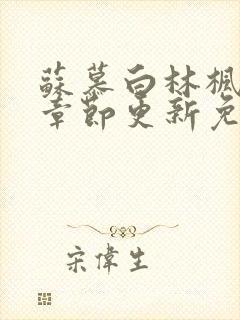 蘇慕白林楓
章節更新免
宋偉生